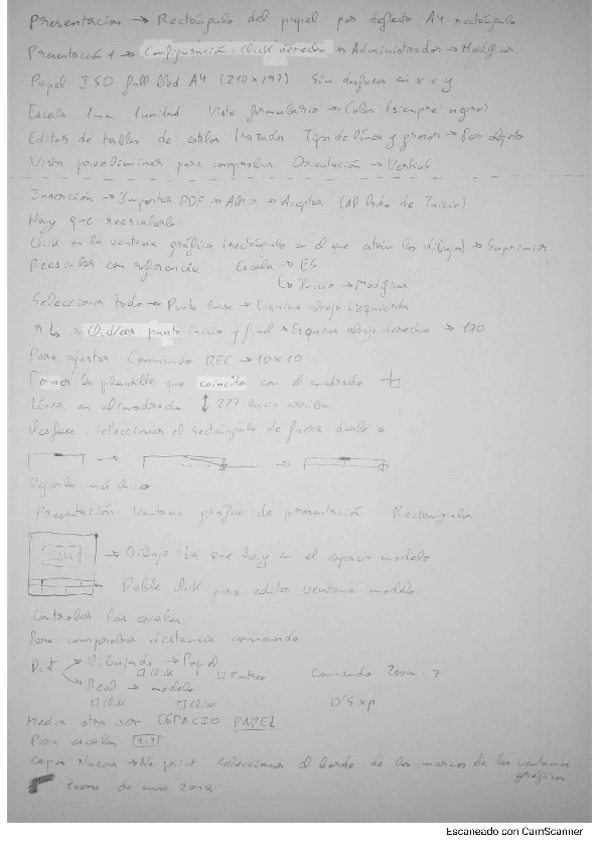 Presentación → Rectángulo del papel por defecto A4 rectángulo
Presentación 1 → Configuración: Click derecho → Administrador → Modificar.
Papel ISO full bled A4 (210x297) Sin desfases en x e y
Escala 1mm 1unidad Vista formulario → Color (siempre negro)
Editor de tablas de estilos trazados Tipo de línea y grosor → Por objeto
Vista preeliminar para comprobar Orientación → Vertical
Inserción → Importar PDF → Abrir → Aceptar (al lado de Inicio)
Hay que reescalarlo.
Click en la ventana gráfica (rectángulo en el que están los dibujos) → Suprimir
Reescalar con referencia Escala → ES
↳ Inicio → Modificar
Seleccionar todo → Punto base → Esquina abajo izquierda
punto inicio y final → Esquina abajo derecha → 190
Para ajustar Comando REC → 10x10
Poner la plantilla que coincida con el cuadrado
Línea en el cuadrado ↕ 277 hacia arriba
seleccionar el rectángulo de fuera darle a
Dejarlo más chico
Presentación Ventana gráfica de presentación Rectangular
Click → Dibujo / La que hay en el espacio modelo
Doble click para editar ventana modelo
Controlar las escalas
Para comprobar distancia comando
Dist Dibujado → Papel
Click
Real → modelo
Click Click
Comando Zoom: Z
0'5 xp
Medir otra vez ESPACIO PAPEL
Para escalar 1:1
Capa Nueva → No print Seleccionar el borde de los marcos de las ventanas
gráficas
Zoom de una zona
Escaneado con CamScanner